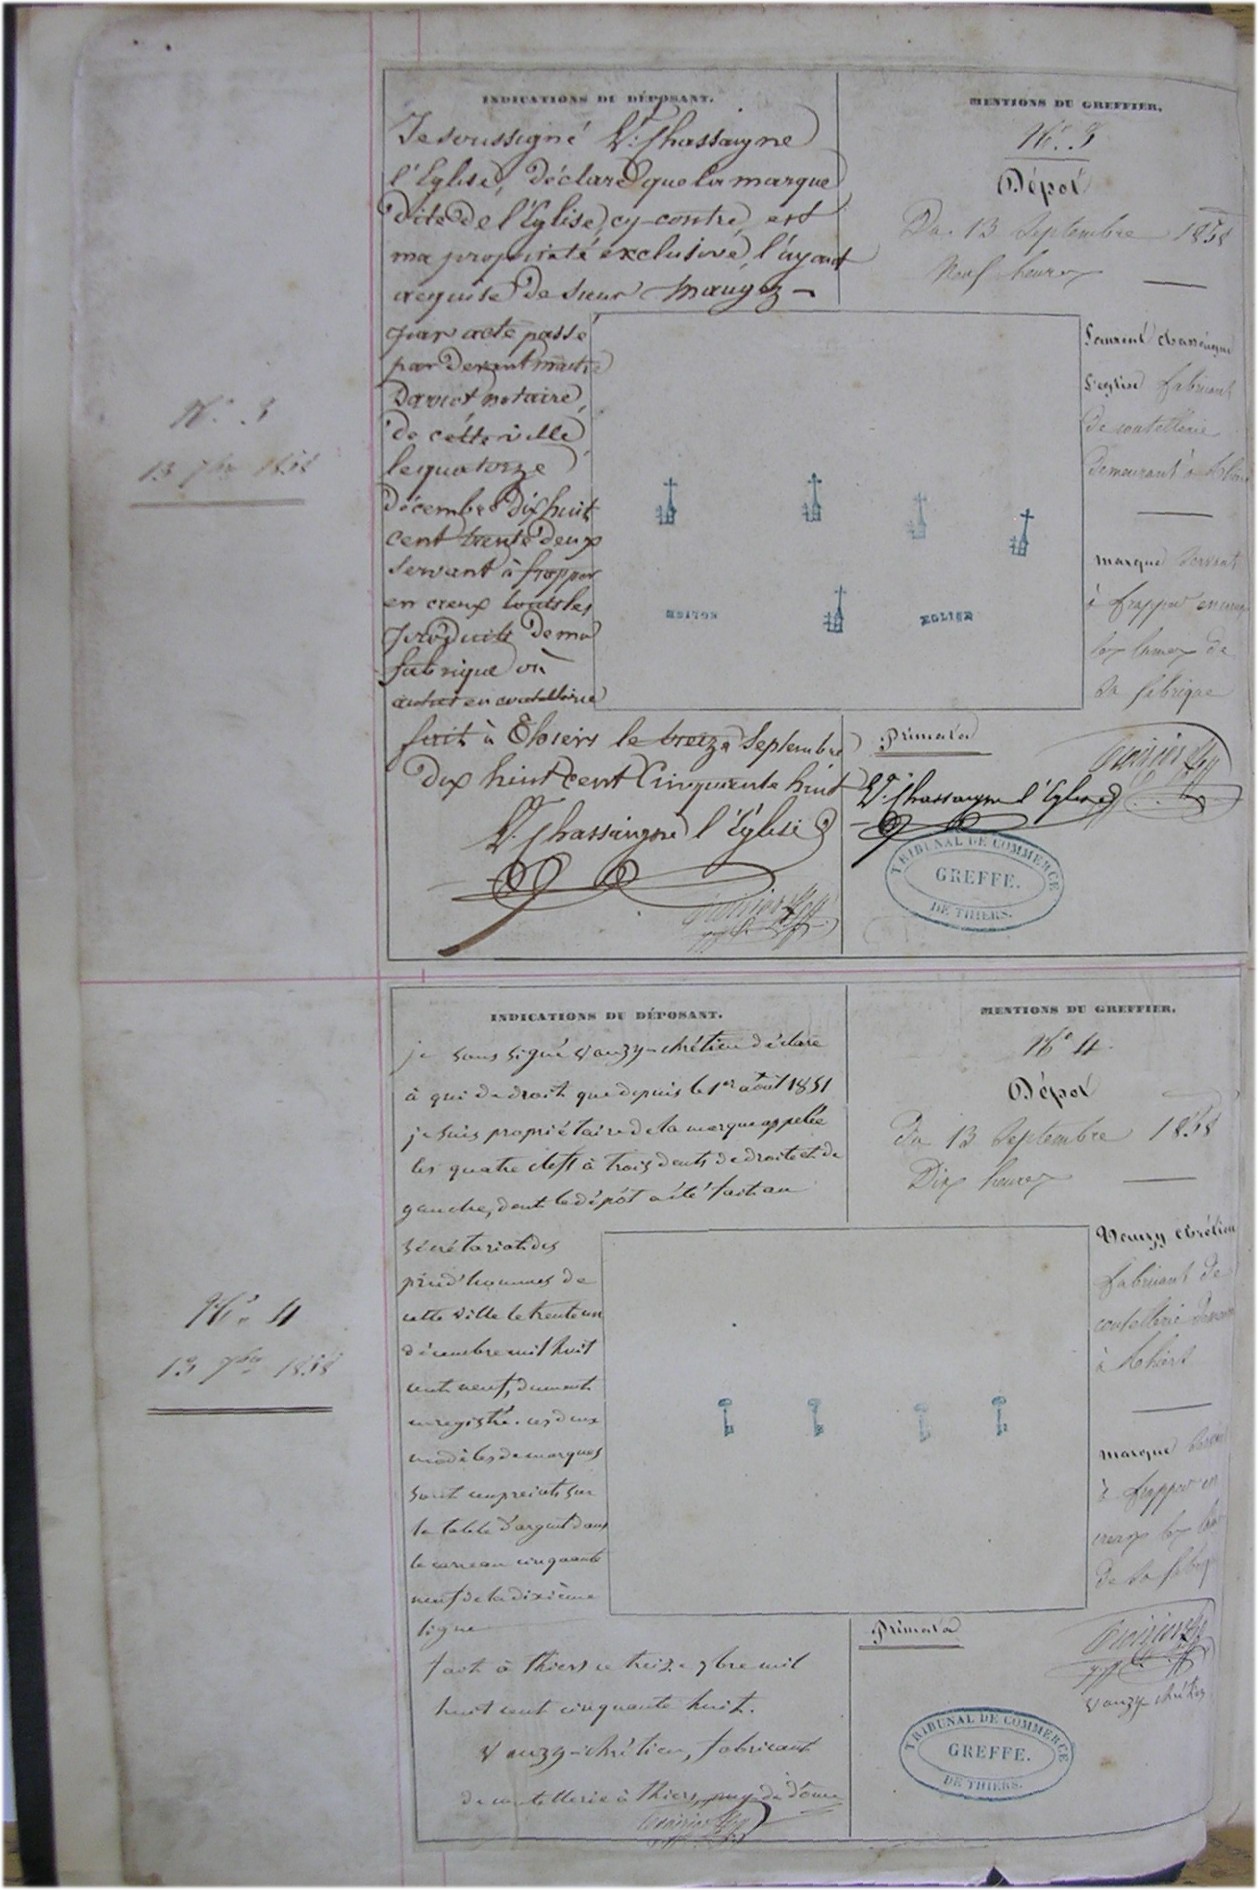 INDICATIONS DU DÉPOSANT.
Je soussigné Vt. Chassaigne
l'Eglise, déclare que la marque
dite de l'Eglise, cy-contre, est
ma propriété exclusive, l'ayant
acquise de sieur
par acte passé
par devant maitre
notaire
de cette ville
le quatorze
décembre dix huit
cent trente deux
servant à frapper
en creux touts les
produits de ma
fabrique
en coutellerie
fait à Thiers le treize Septembre
Dix huit cent Cinquante huit
Vt. Chassaigne l'Eglise
MENTIONS DU GREFFIER.
N° 3
Dépôt
Du 13 Septembre 1858
Neuf heures
Laurent Chassaigne
l'eglise fabricant
de coutellerie
demeurant à Thiers
marque servant
à frapper en creux
les lames de
sa fabrique
EGLISE
Primata
Vt. Chassaigne l'Eglise
TRIBUNAL DE COMMERCE
GREFFE.
DE THIERS.
N° 3
13 7bre 1858
INDICATIONS DU DÉPOSANT.
je sous signé vauzy-chrétien déclare
à qui de droit que depuis le 1er août 1851
je suis propriétaire de la marque appelée
les quatre clefs à trois dents de droite et de
gauche, dont le dépôt a été fait au
sécrétariat des
prud'hommes de
cette ville le trente un
décembre mil huit
cent neuf, dument
enregistré. ces deux
modèles de marques
sont empreints sur
la table d'argent dans
le carreau cinquante
neuf de la dixième
ligne
fait à Thiers ce treize 7bre mil
huit cent cinquante huit.
vauzy-chrétien, fabricant
de coutellerie à Thiers, puy de dôme
MENTIONS DU GREFFIER.
N° 4
Dépôt
Du 13 Septembre 1858
Dix heures
Vauzy chrétien
fabricant de
coutellerie
à Thiers
marque servant
à frapper en
creux les
de sa
Primata
vauzy chrétien
TRIBUNAL DE COMMERCE
GREFFE.
DE THIERS.
N° 4
13 7bre 1858